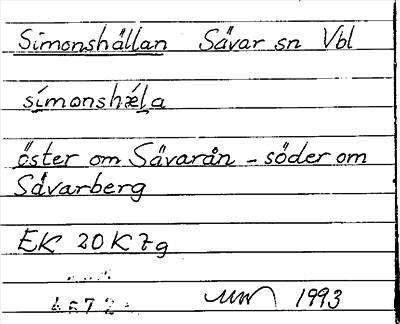 Simonshällan Sävar sn Vbl
símonshǽla
öster om Sävarån - söder om
Sävarberg
EK 20K7g
1993